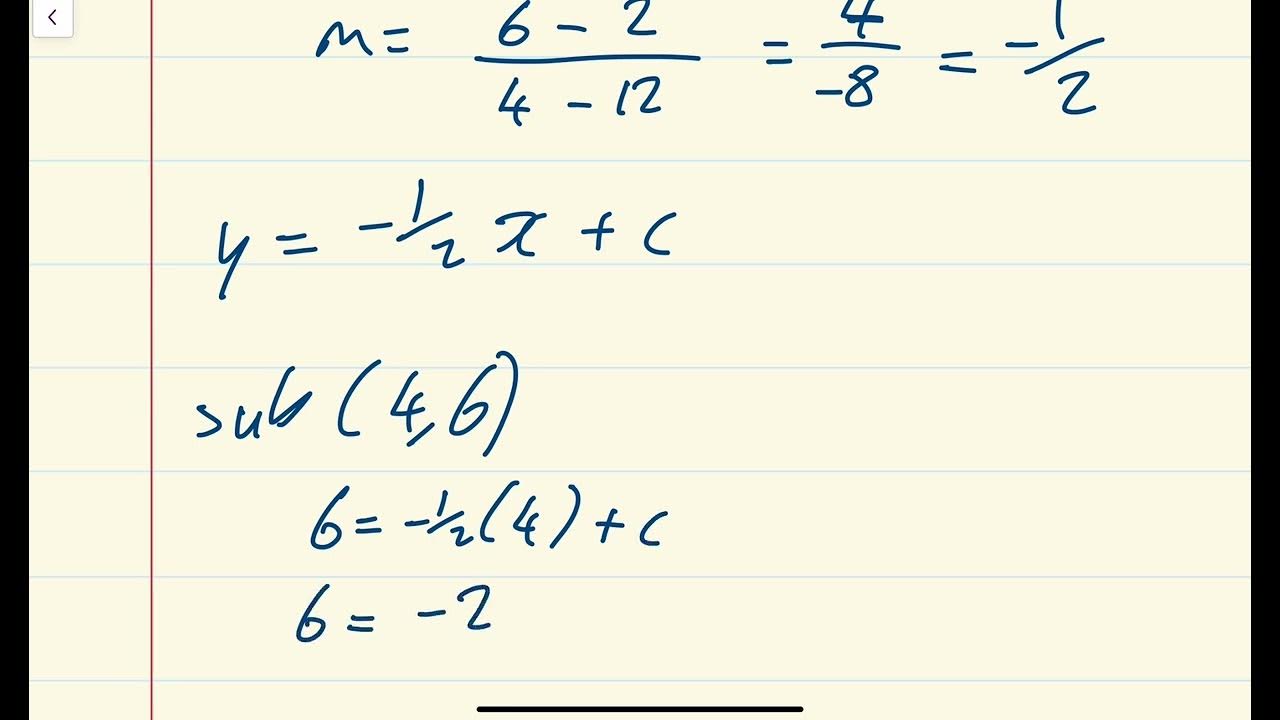 m = (6 - 2)/(4 - 12) = 4/-8 = -1/2
y = -1/2 x + c
sub (4,6)
6 = -1/2 (4) + c
6 = -2